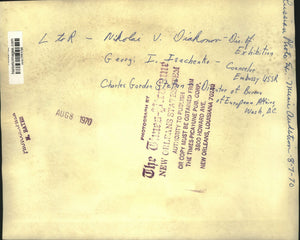 L to R - Nikolai V. Diakonov - Dir. of
Exhibition
Georgi I. Isachenko -
Counselor
Embassy, USSR
Charles Gordon
Director of Bureau
of European Affairs,
Wash, D.C.
AUG 8 1970
PHOTOGRAPH BY
The Times-Picayune
NEW ORLEANS STATES-ITEM
AUTHORITY TO PUBLISH
OR COPY MUST BE OBTAINED FROM
THE TIMES PICAYUNE PUB. CORP.
3800 HOWARD AVE.
NEW ORLEANS, LOUISIANA
8-7-70